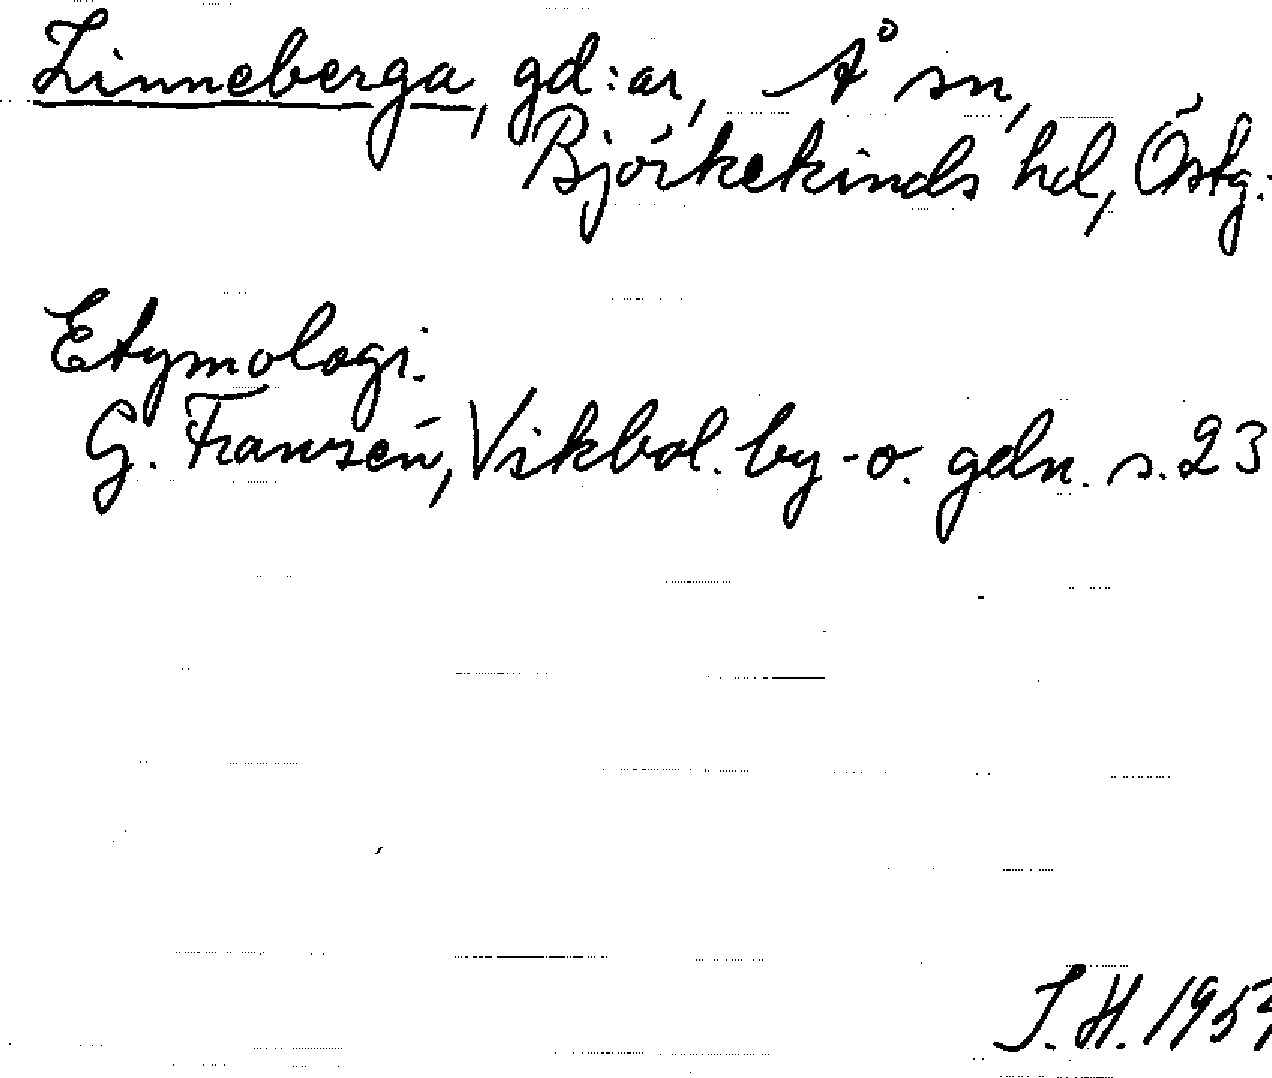 Linneberga, gd:ar, Å sn,
Björkekinds hd, Östg.
Etymologi.
G. Franzén, Vikbol. by- o. gdn. s. 23